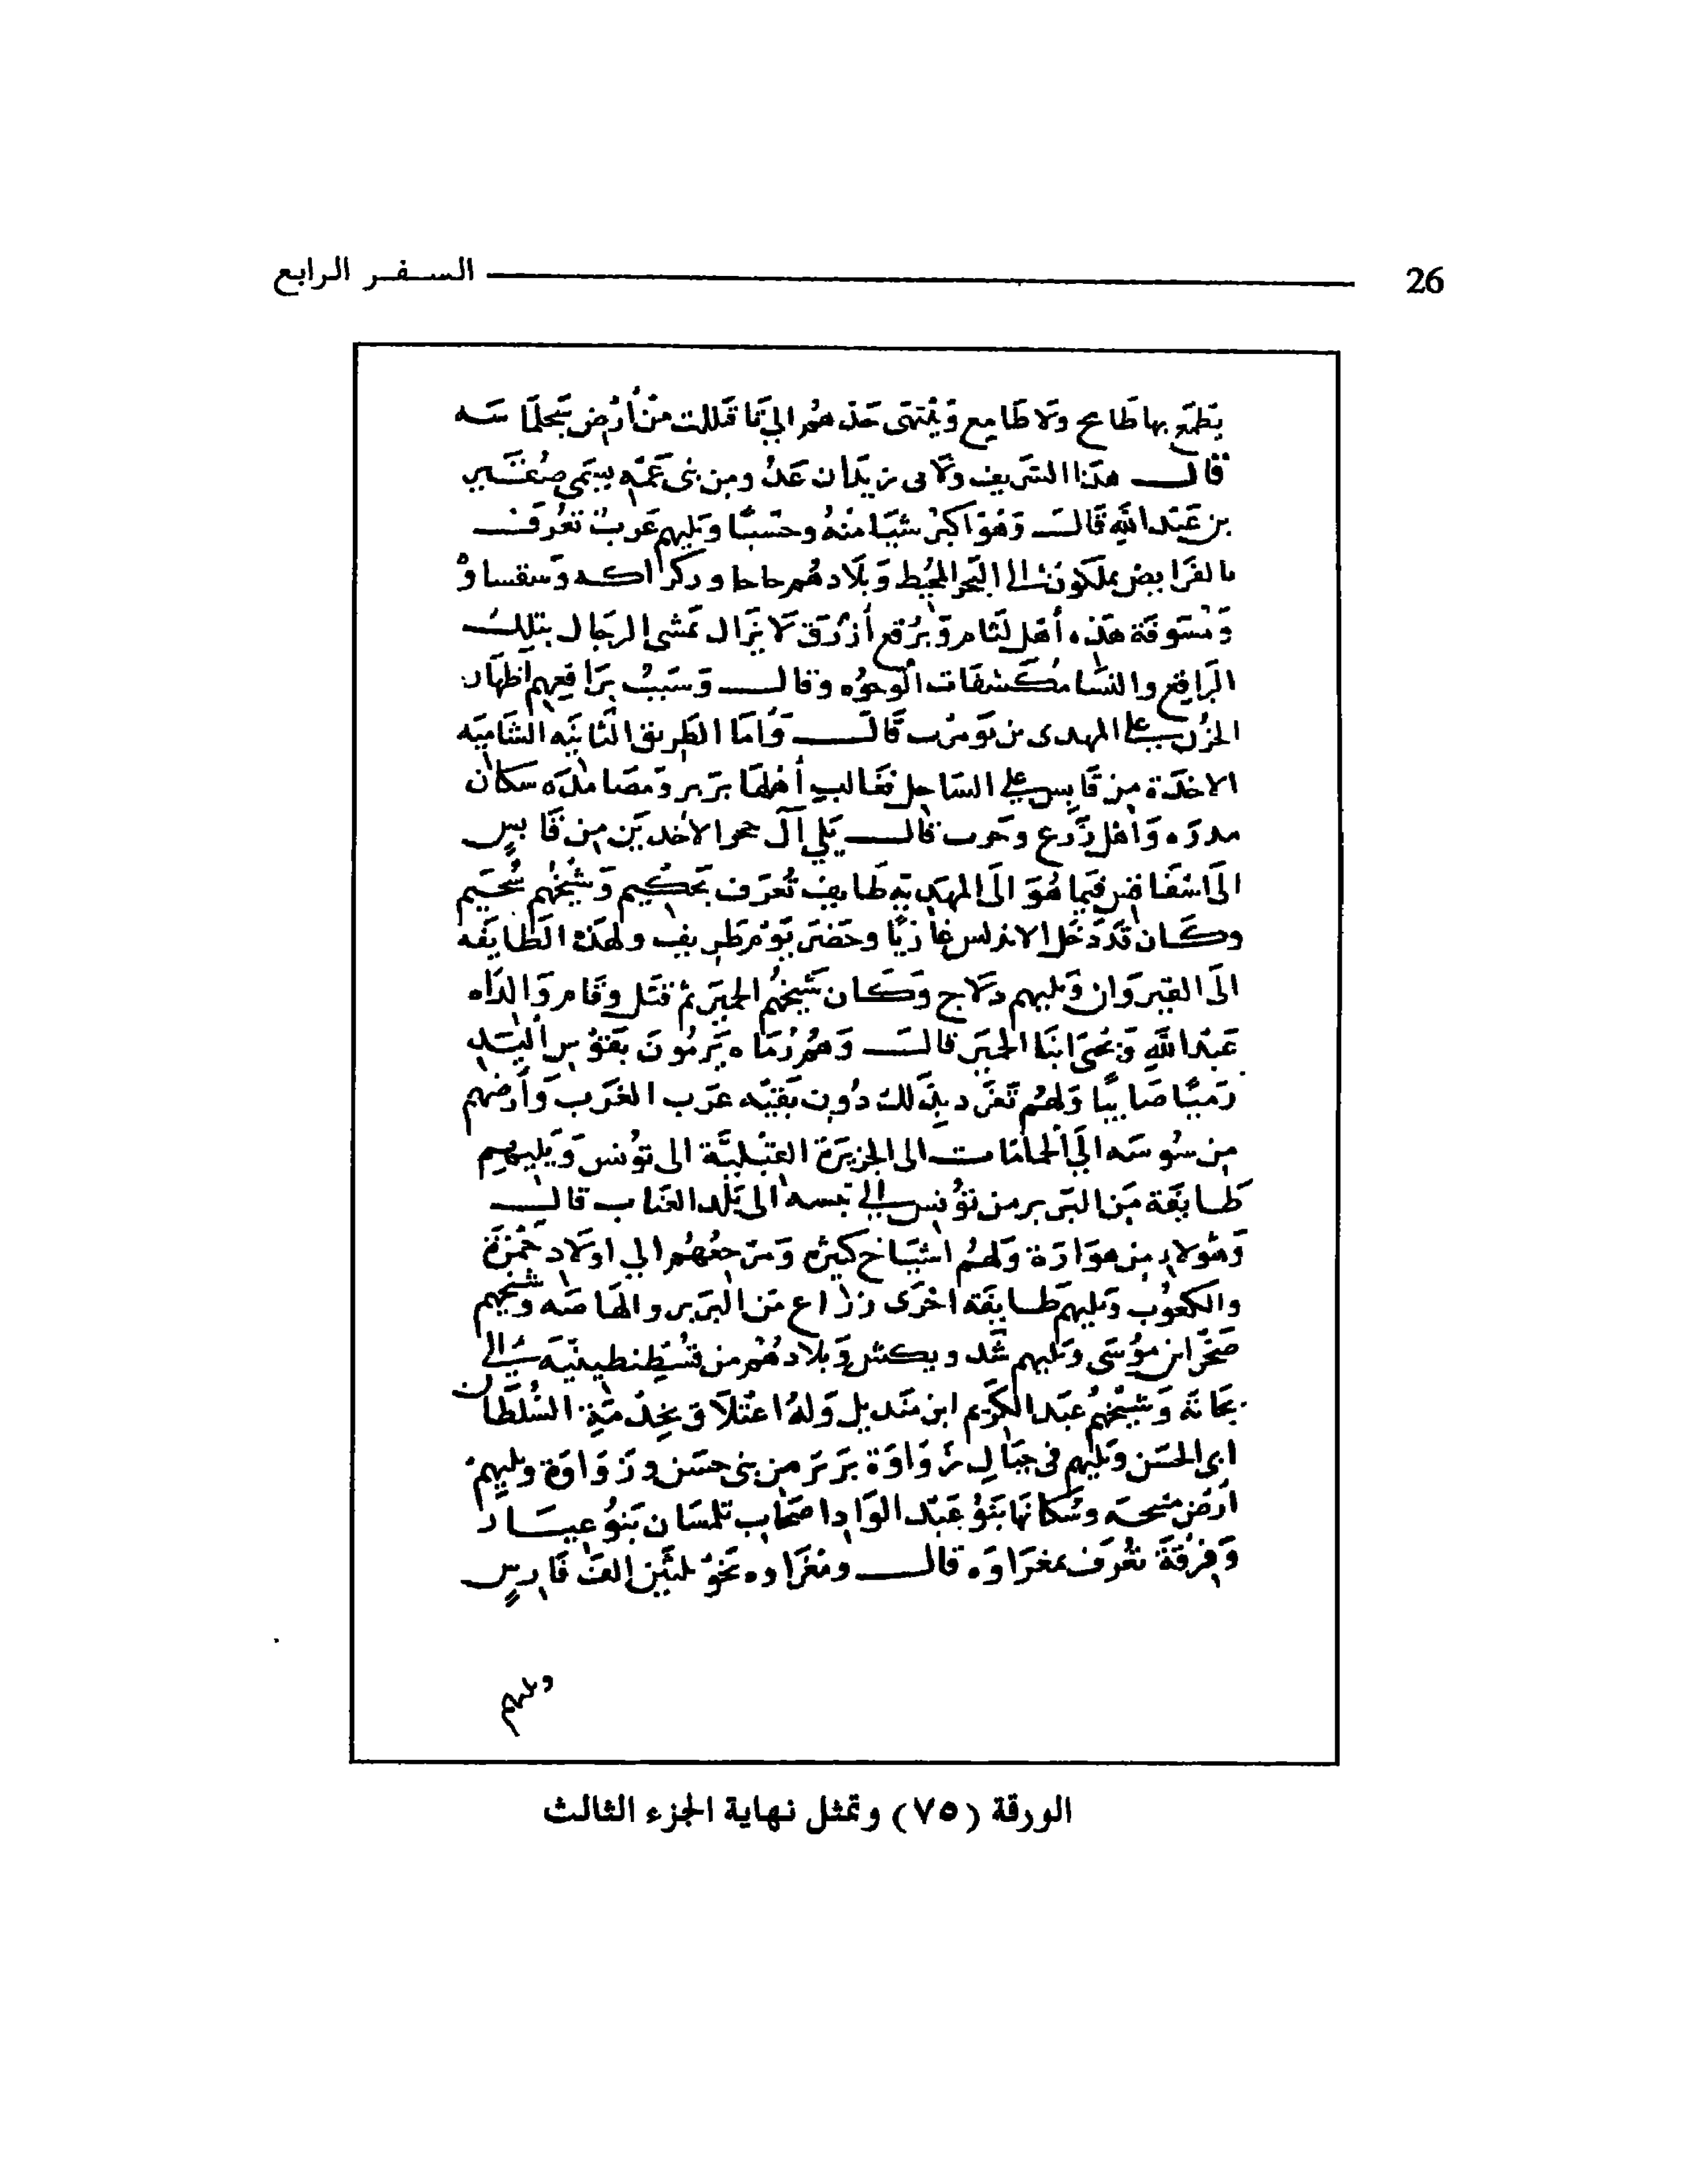 26 السفر الرابع
يطمع بها طامح ولا طامع وينتهى حد هم الي تا قللت من أرض سجلماسه
قال هذا الشريف ولابى زيدان عد ومن بنى عمّه يسمى
بن عبد الله قال وهو اكبر شيبا منه وحسبًا ويليهم عرب تعرف
بالفرايض يملكون الى البحر المحيط وبلادهم حاحا ودكراكه وسقساوْ
ومسوفة هذه أهل لثام وبرقع أزرق لا يزال تمشى الرجال بتلك
البراقع والنسا مكشفات الوجوه وقال وسبب براقعهم اظهار
الحزن على المهدى بن تومرت قال وأما الطريق الثانيه الشاميه
الاخذة من قابس على الساحل فغالب أهلها بربر ومصامده سكان
مدره واهل زرع وحرب قال يلي آل حجر الاخدين من قابس
الى اسفاقس فيما هو الى المهديه طايفه تعرف بحكيم وشيخهم سحيم
وكان قد دخل الاندلس غازيًا وحضر يوم طريف ولهذه الطايفه
الى القيروان ويليهم دلاج وكان شيخهم الحير ثم قتل وقام ولداه
عبد الله ويحيى ابنا الحير قال وهم رماه يرمون بقوس اليد
رميًا صايبًا ولهم تفرد بذلك دون بقيه عرب الغرب وأرضهم
من سوسه الي الحمامات الى الجزيرة القبلية الى تونس ويليهم
طايفة من البربر من تونس الى تبسه الى بلد العناب قال
وهولاء من هوارة ولهم اشياخ كثيره ومرجعهم الي اولاد حمزة
والكعوب ويليهم طايفة اخرى زراع من البربر والهاصه وشيخهم
صخر ابن موسى ويليهم سدويكش وبلادهم من قسطنطينيه الى
بجاية وشيخهم عبد الكريم ابن منديل وله اعتلاق بخدمة السلطان
ابي الحسن ويليهم في جبال زواوة بربر من بنى حسن وزواوة ويليهم
ارض متيجه وسكانها بنو عبد الواد اصحاب تلمسان بنو عيسار
وفرقة تعرف بمغراوه قال ومغراوه نحو ثلثين الف فارس
ويليهم
الورقة (٧٥) وتمثل نهاية الجزء الثالث